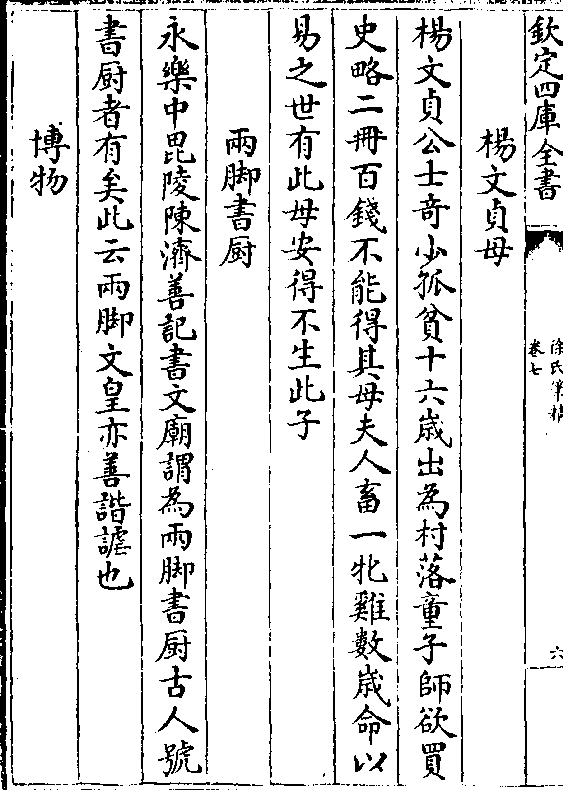 欽定四庫全書
徐氏筆精
卷七
六
楊文貞母
楊文貞公士竒少孤貧十六歳出為村落童子師欲買
史略二冊百錢不能得其母夫人畜一牝雞數歳命以
易之世有此母安得不生此子
兩脚書厨
永樂中毘陵陳濟善記書文廟謂為兩脚書厨古人號
書厨者有矣此云兩脚文皇亦善諧謔也
博物